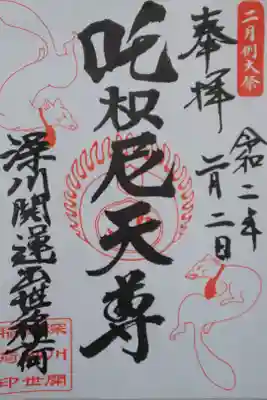 二月例大祭
奉拝
令和二年
二月二日
吒枳尼天尊
深川開運出世稲荷
深川開
運出世
稲荷印